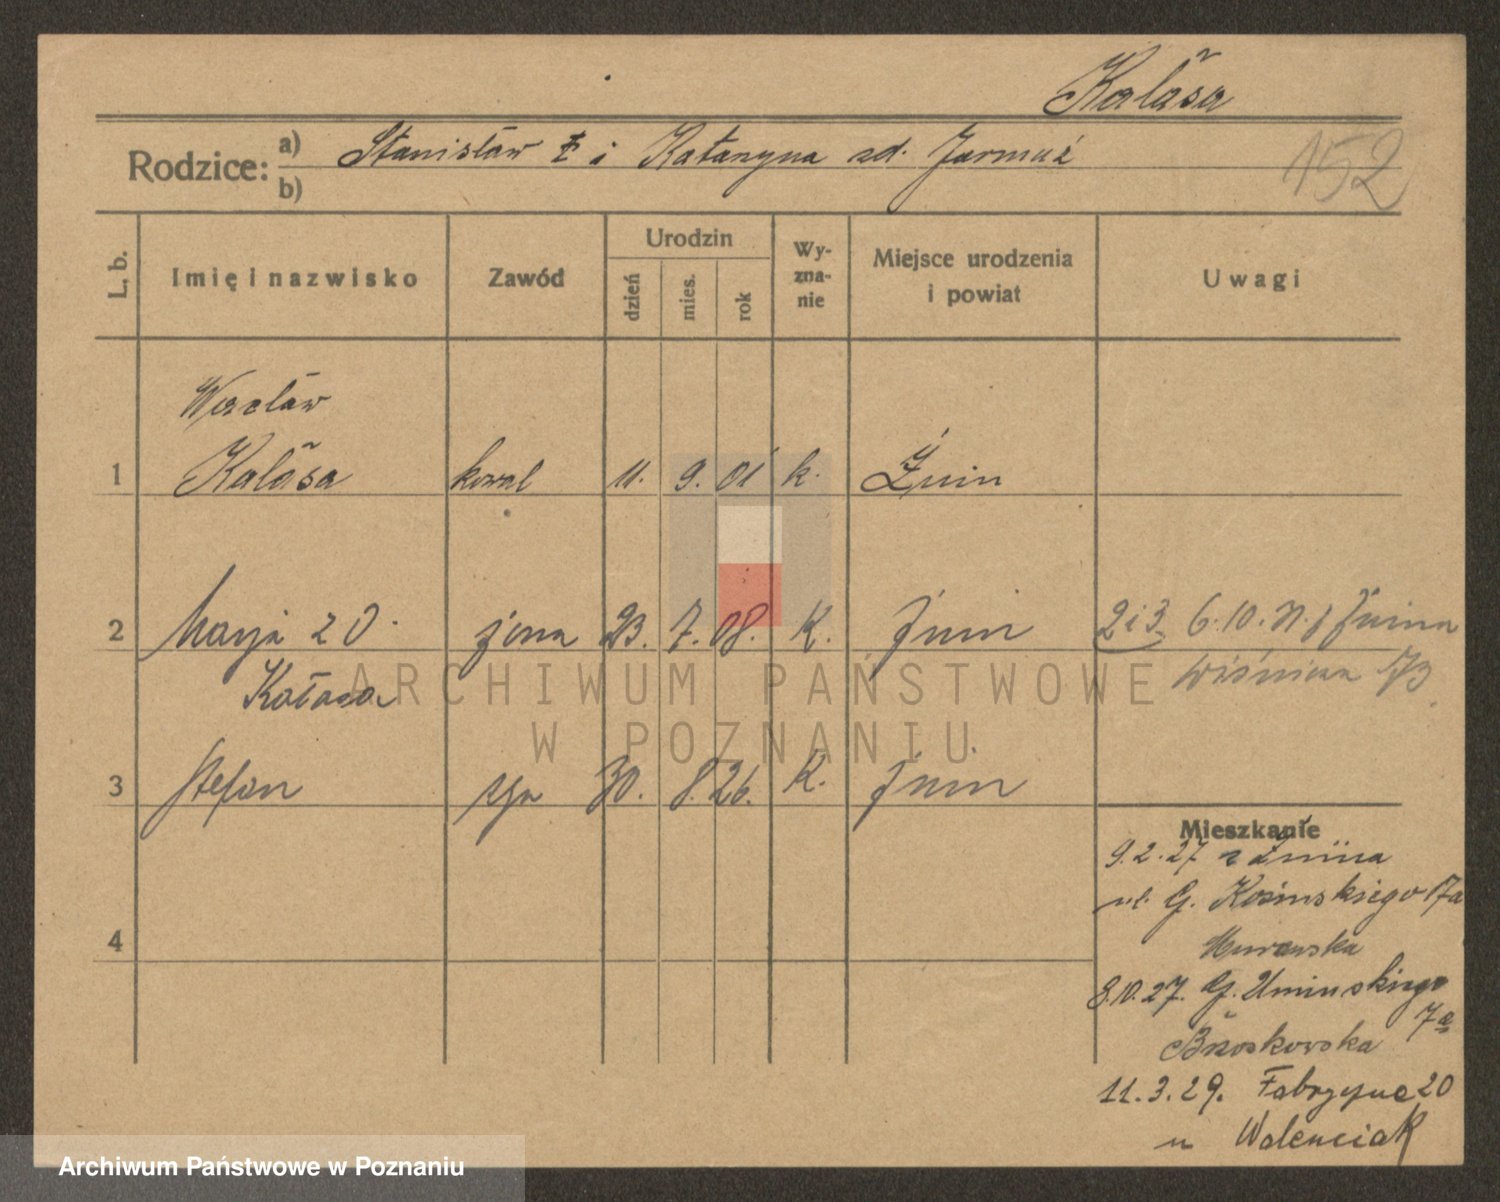 Kałasa
152
Rodzice: a) Stanisław i Katarzyna zd. Jarmuż
b)
L. b. Imię i nazwisko Zawód Urodzin dzień mies. rok Wy-zna-nie Miejsce urodzenia i powiat Uwagi
Wacław
1 Kałasa kowal 11. 9. 01 k. Żnin
2 Marja z D. żona 23. 7. 08. K. Żnin 2 i 3 6.10. z Żnina
Kałasa Wiśniowa
3 Stefan syn 30. 8. 26. K. Żnin
Mieszkanie
9.2.27 z Żnina
ul. G. Kosinskiego 17a
Murawska
4
8.10.27. G. Uminskiego 7a
Brzoskowska
11.3.29. Fabryczna 20
u Walenciak
ARCHIWUM PAŃSTWOWE
W POZNANIU
Archiwum Państwowe w Poznaniu